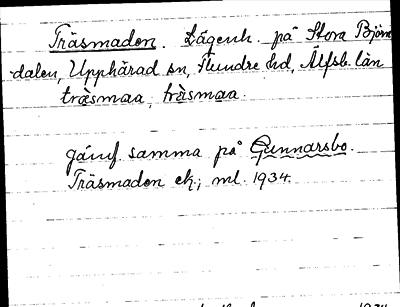 Träsmaden. Lägenh. på Stora Björn
dalen, Upphärad sn, Flundre hd, Älfsb. län
träsmaa, träsmaa.
jämf. samma på Gunnarsbo.
Träsmaden ek.; ml. 1934.